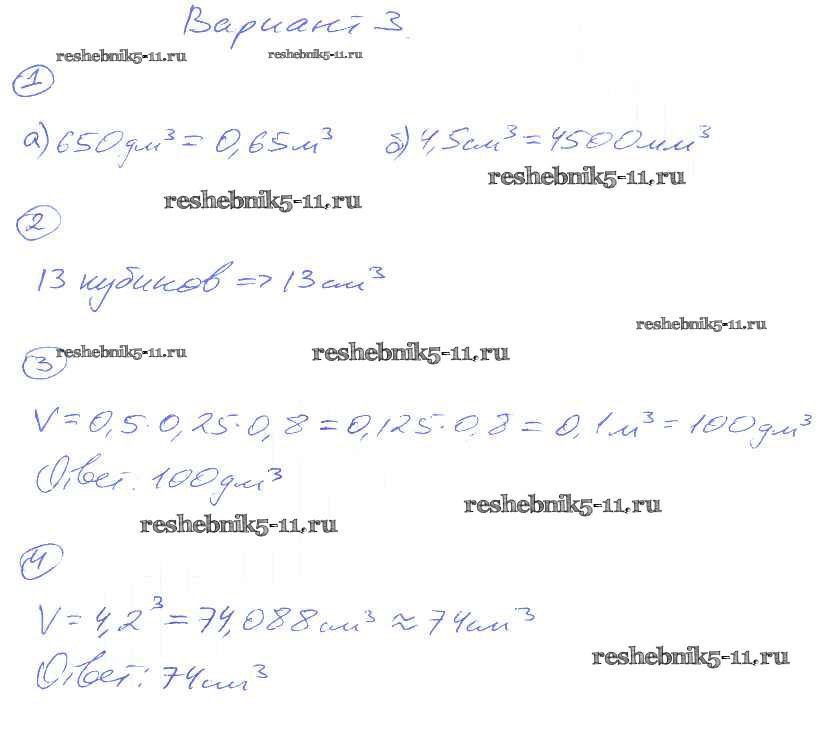 Вариант 3
reshebnik5-11.ru reshebnik5-11.ru
1
а) 650 дм³ = 0,65 м³ б) 4,5 см³ = 4500 мм³
reshebnik5-11.ru
reshebnik5-11.ru
2
13 кубиков => 13 см³
reshebnik5-11.ru
3 reshebnik5-11.ru reshebnik5-11.ru
V = 0,5·0,25·0,8 = 0,125·0,8 = 0,1 м³ = 100 дм³
Ответ: 100 дм³
reshebnik5-11.ru
reshebnik5-11.ru
4
V = 4,2³ = 74,088 см³ ≈ 74 см³
reshebnik5-11.ru
Ответ: 74 см³